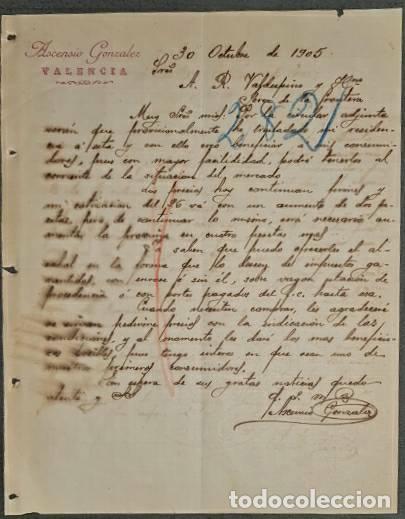 Ascensio Gonzalez
VALENCIA
30 Octubre de 1905
Sres
A. R. Valdespino y Hno
Jerez de la Frontera
2821
Muy Sres mios: Por la circular adjunta
verán que provisionalmente he trasladado mi residen
cia á esta y con ello creo beneficiar á mis consumi
dores, pues con mayor facilidad, podré tenerlos al
corriente de la situacion del mercado
Los precios hoy continuan firmes y
mi cotizacion del 96 vá con un aumento de dos pe
setas, pero de continuar lo mismo, será necesario au
mentar la
en cuatro pesetas mas.
saben que puedo ofrecerles el al
cohol en la forma que lo deseen de impuestos ga
rantidos, con envase ó sin él, sobre vagon estacion de
procedencia ó con portes pagados del f.c. hasta esa.
Cuando necesiten comprar, les agradeceré
se sirvan pedirme precios con la indicacion de las
condiciones, y al momento les daré los mas beneficio
sos posibles, pues tengo interes en que sean uno de
nuestros primeros consumidores.
Con espera de sus gratas noticias quedo
atento y S.S.
q. b. s. m.
Ascensio Gonzalez
todocoleccion.net